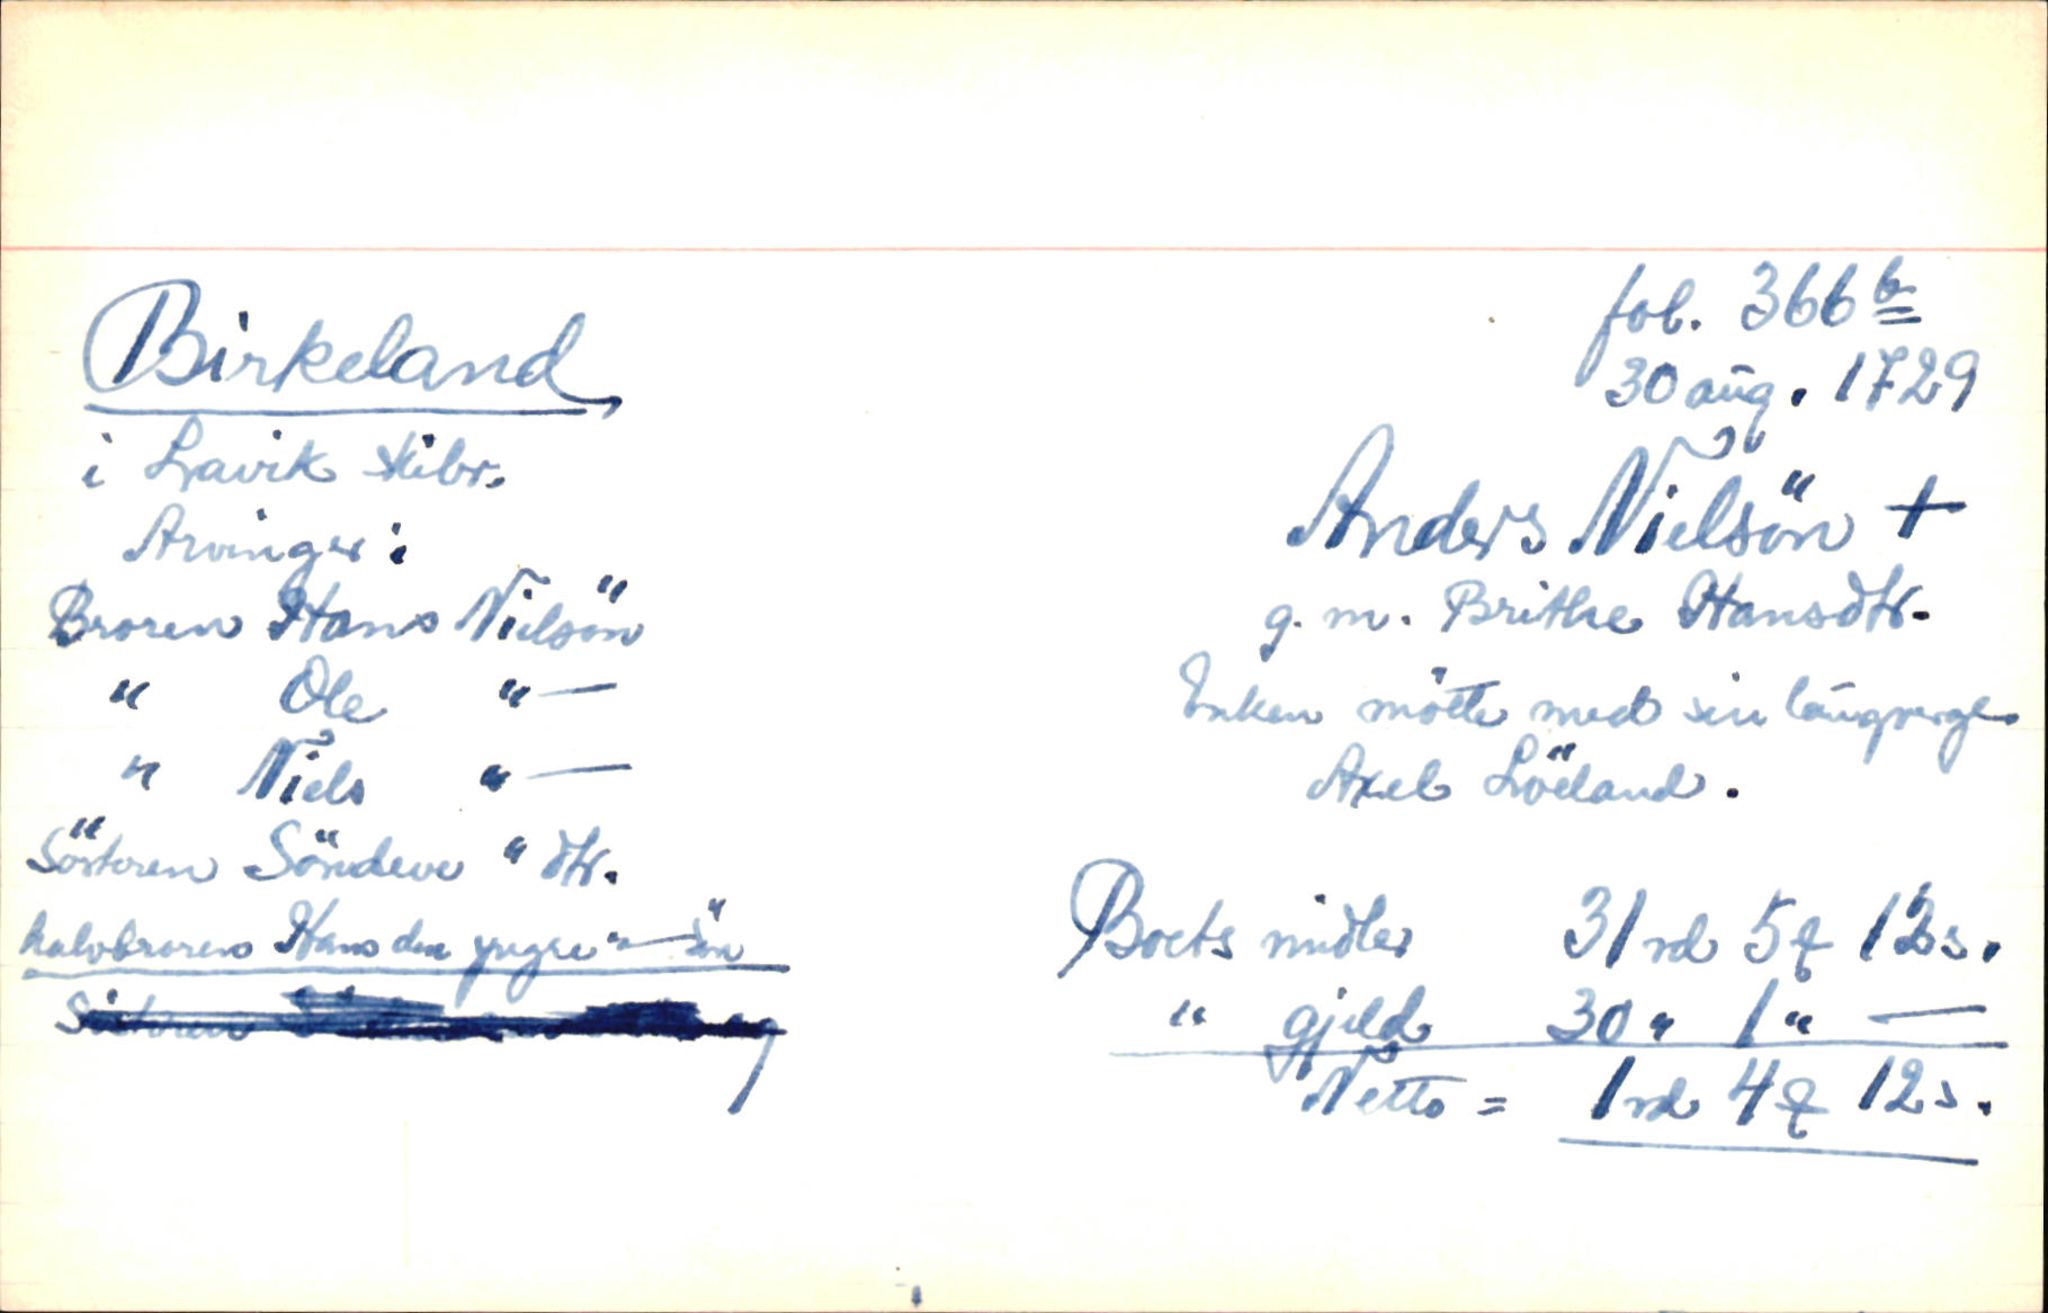 Birkeland
i Lavik skibr.
Arvinger:
Broren Hans Nielsön
" Ole "—
" Niels "—
Söstoren Söndeve " dtr.
halvbroren Hans den yngre "— sön
fol. 366 b
30 aug. 1729
Anders Nielsön +
g. m. Brithe Hansdtr.
Enken mötte med sin laugverge
Axel Löeland.
Boets midler 31 rd 5 ʠ 12 s.
" gjeld 30 " 1 " —
Netto = 1 rd 4 ʠ 12 s.